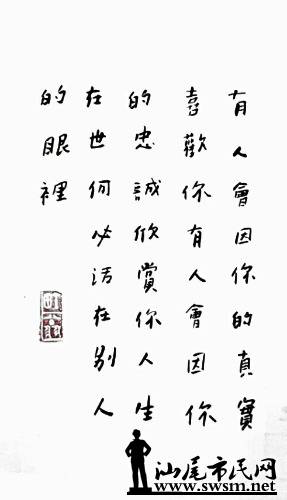 有人會因你的真實
喜歡你有人會因你
的忠誠欣賞你人生
在世何必活在別人
的眼裡
汕尾市民网
www.swsm.net